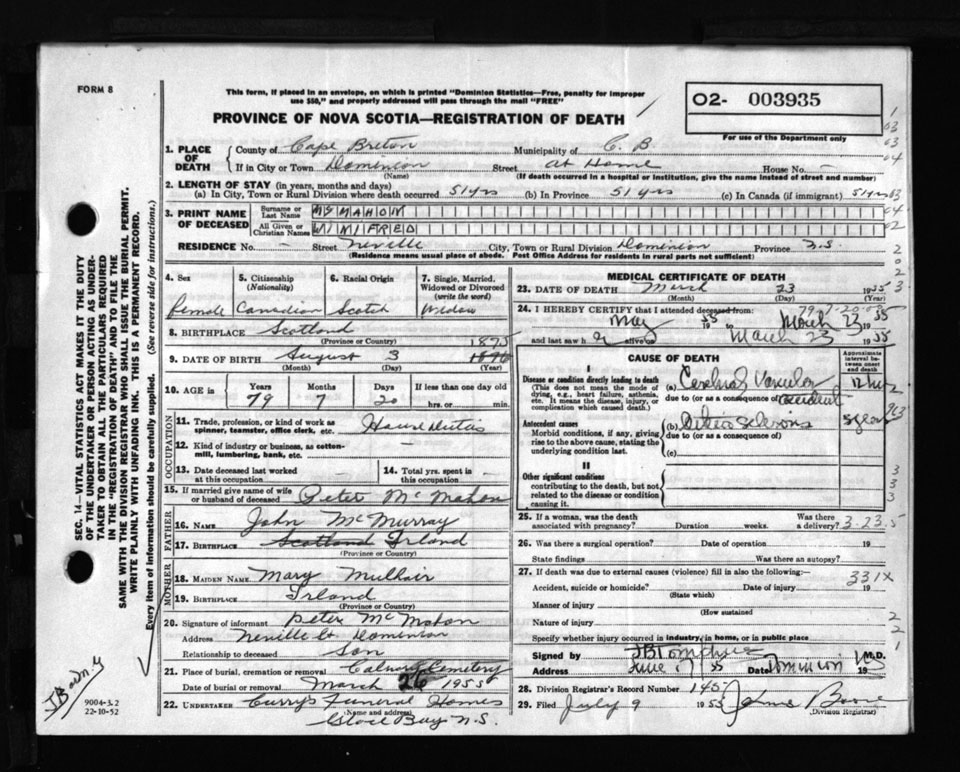 FORM 8
This form, if placed in an envelope, on which is printed "Dominion Statistics—Free, penalty for improper
use $50," and properly addressed will pass through the mail "FREE"
PROVINCE OF NOVA SCOTIA—REGISTRATION OF DEATH
02- 003935
For use of the Department only
1. PLACE OF DEATH
County of Cape Breton Municipality of C. B.
If in City or Town Dominion Street at Home House No. -
(Name) (If death occurred in a hospital or institution, give the name instead of street and number)
2. LENGTH OF STAY (in years, months and days)
(a) In City, Town or Rural Division where death occurred 51 yrs (b) In Province 51 yrs (c) In Canada (if immigrant) 51 yrs
3. PRINT NAME OF DECEASED
Surname or Last Name McMAHON
All Given or Christian Names WINIFRED
RESIDENCE No. - Street Neville City, Town or Rural Division Dominion Province N.S.
(Residence means usual place of abode. Post Office Address for residents in rural parts not sufficient)
4. Sex
Female
5. Citizenship (Nationality)
Canadian
6. Racial Origin
Scotch
7. Single, Married, Widowed or Divorced (write the word)
Widow
8. BIRTHPLACE Scotland
(Province or Country)
1875
9. DATE OF BIRTH August 3 1876
(Month) (Day) (Year)
10. AGE in
Years Months Days If less than one day old
79 7 20 hrs. or min.
OCCUPATION
11. Trade, profession, or kind of work as spinner, teamster, office clerk, etc. House Duties
12. Kind of industry or business, as cotton-mill, lumbering, bank, etc. -
13. Date deceased last worked at this occupation -
14. Total yrs. spent in this occupation -
15. If married give name of wife or husband of deceased Peter McMahon
FATHER
16. NAME John McMurray
17. BIRTHPLACE Scotland Irland
(Province or Country)
MOTHER
18. MAIDEN NAME Mary Mulhair
19. BIRTHPLACE Irland
(Province or Country)
20. Signature of informant Peter McMahon
Address Neville St Dominion
Relationship to deceased Son
21. Place of burial, cremation or removal Calvary Cemetery
Date of burial or removal March 26 1955
22. UNDERTAKER Curry's Funeral Homes
(Name and address)
Glace Bay N.S.
MEDICAL CERTIFICATE OF DEATH
23. DATE OF DEATH March 23 1955
(Month) (Day) (Year)
79-7-20
24. I HEREBY CERTIFY that I attended deceased from:
May 1955 to March 23 1955
and last saw her alive on March 23 1955
CAUSE OF DEATH
Approximate interval between onset and death
I
Disease or condition directly leading to death
(This does not mean the mode of dying, e.g., heart failure, asthenia, etc. It means the disease, injury, or complication which caused death.)
(a) Cerebral Vascular accident 12 hrs
due to (or as a consequence of)
Antecedent causes
Morbid conditions, if any, giving rise to the above cause, stating the underlying condition last.
(b) 5 years
due to (or as a consequence of)
(c)
II
Other significant conditions
contributing to the death, but not related to the disease or condition causing it.
25. If a woman, was the death associated with pregnancy? Duration weeks. Was there a delivery? 3.23.5
26. Was there a surgical operation? - Date of operation 19
State findings Was there an autopsy?
27. If death was due to external causes (violence) fill in also the following:—
331X
Accident, suicide or homicide? Date of injury 19
(State which)
Manner of injury
(How sustained)
Nature of injury
Specify whether injury occurred in industry, in home, or in public place
Signed by M.D.
Address June 7 55 Date Dominion NS 19
28. Division Registrar's Record Number 1457
29. Filed July 9 1955
(Division Registrar)
SEC. 14—VITAL STATISTICS ACT MAKES IT THE DUTY
OF THE UNDERTAKER OR PERSON ACTING AS UNDER-
TAKER TO OBTAIN ALL THE PARTICULARS REQUIRED
IN THE "REGISTRATION OF DEATH" AND TO FILE THE
SAME WITH THE DIVISION REGISTRAR WHO SHALL ISSUE THE BURIAL PERMIT.
WRITE PLAINLY WITH UNFADING INK. THIS IS A PERMANENT RECORD.
Every item of information should be carefully supplied. (See reverse side for instructions.)
9004-3.2
22-10-52